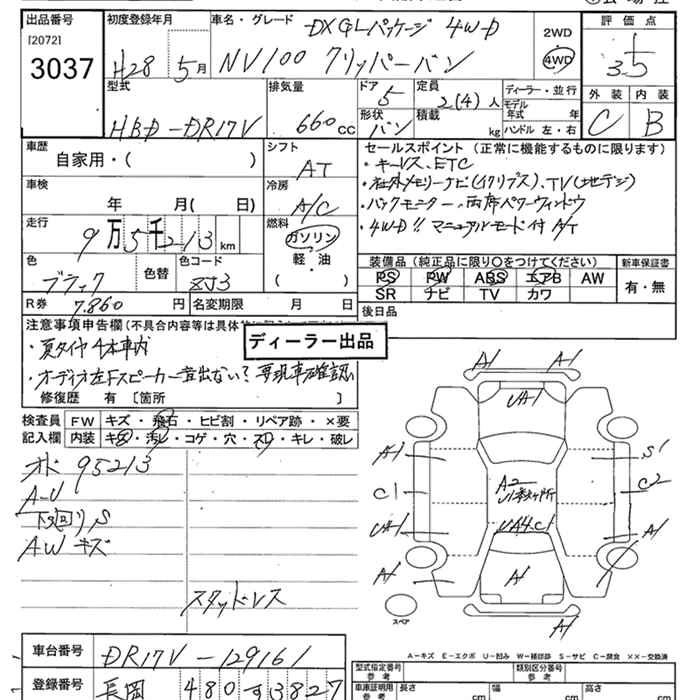 出品番号 初度登録年月 車名・グレード DX GLパッケージ 4WD 2WD 評価点
[2072]
3037 H28 5月 NV100 クリッパーバン 4WD 3.5
型式 排気量 ドア 5 定員 2(4)人 ディーラー・並行 外装 内装
HBD-DR17V 660cc 形状 バン 積載 kg モデル年式 年 C B
ハンドル 左・右
車歴 シフト セールスポイント(正常に機能するものに限ります)
自家用・( ) AT ・キーレス、ETC
車検 冷房 ・社外メモリーナビ(イクリプス)、TV(地デジ)
年 月( 日) A/C ・バックモニター・両席パワーウィンドウ
走行 燃料 ・4WD!! マニュアルモード付A/T
9万5千213km ガソリン
軽・油
( )
色 色替 色コード 装備品(純正品に限り○をつけてください) 新車保証書
ブラック ZJ3 PS PW ABS エアB AW 有・無
SR ナビ TV カワ
R券 7.860円 名変期限 月 日 後日品
注意事項申告欄(不具合内容等は具体的に
ディーラー出品
・夏タイヤ4本車内
・オーディオ左Fスピーカー音出ない?要現車確認
修復歴 有 [箇所 ]
検査員 FW キズ・飛石・ヒビ割・リペア跡・×要
記入欄 内装 キズ・汚レ・コゲ・穴・スレ・キレ・破レ
オド 95213
A-U
下廻り S
AW キズ
スタッドレス
A1 A1
UA1
A1 S1
A2
C1 C2
UA4C1
UA1 A1
A1 A1
スペア A1
A-キズ E-エクボ U-凹み W-補修跡 S-サビ C-腐食 ××-交換済
車台番号 DR17V-129161 型式指定番号 参考 類別区分番号 参考
登録番号 長岡 480 す 3827 車庫証明用 参考 長さ cm 幅 cm 高さ cm